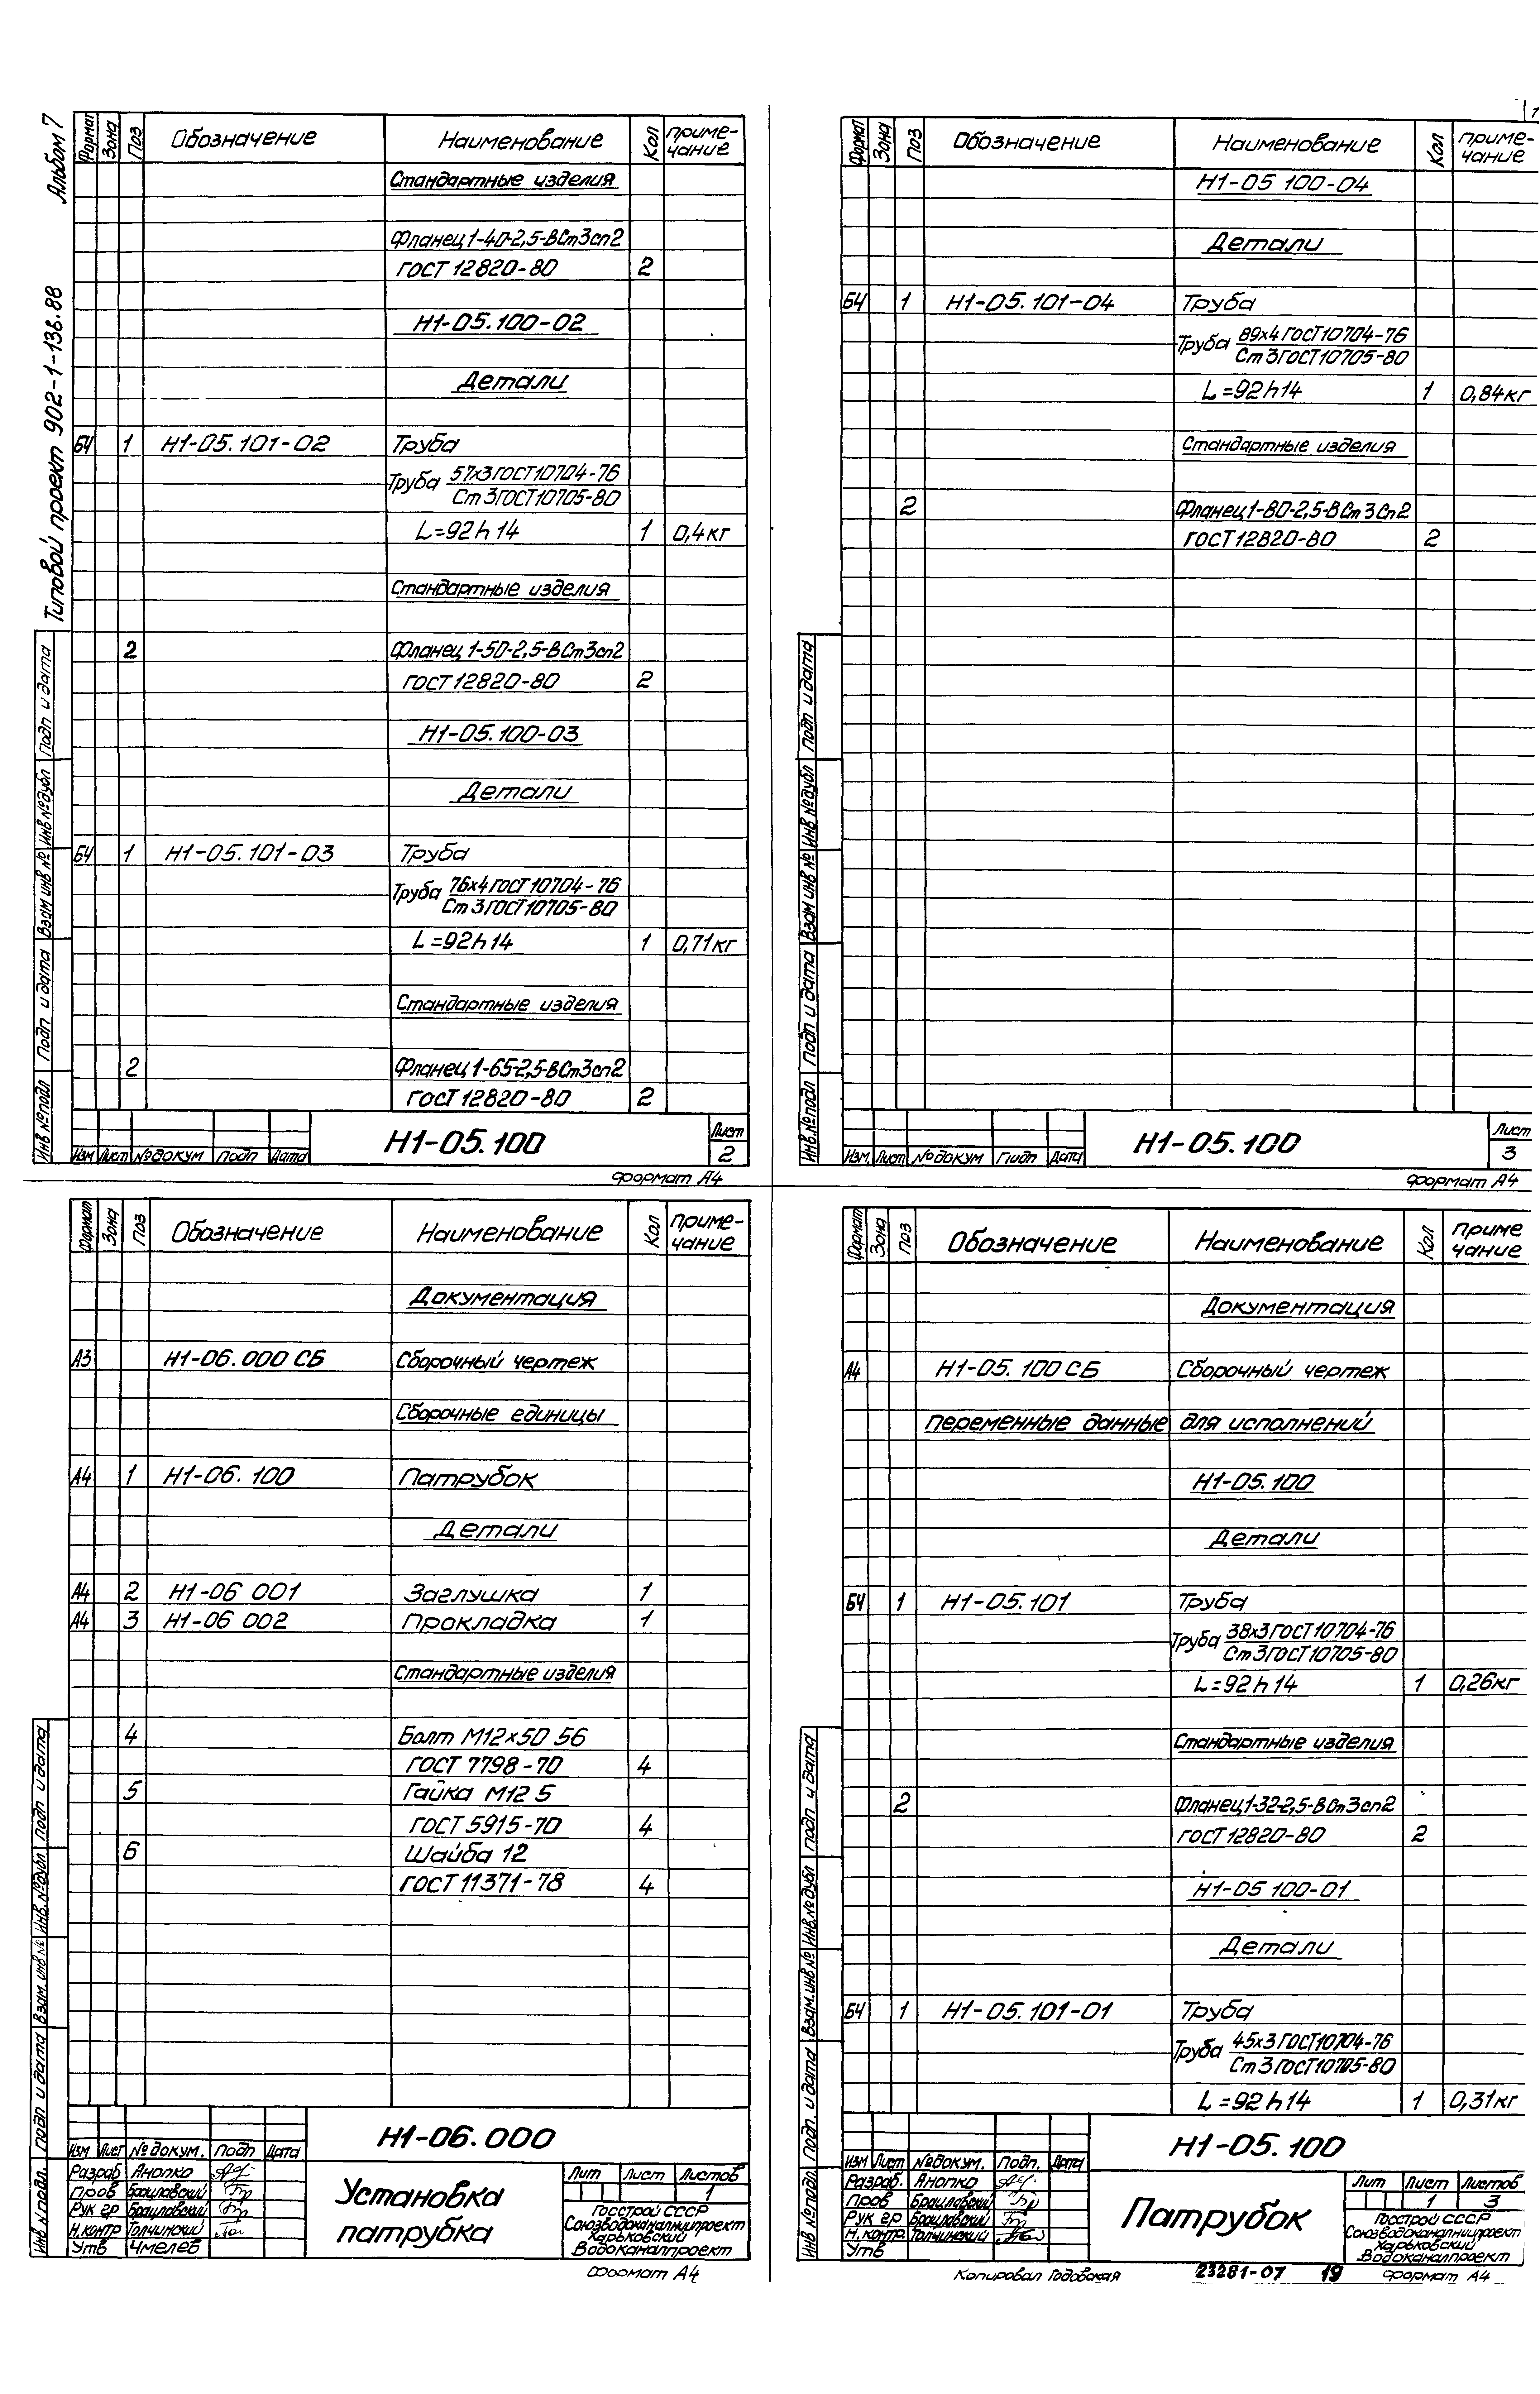 Альбом 7
Типовой проект 902-1-138.88
Формат Зона Поз Обозначение Наименование Кол Приме-
чание
Стандартные изделия
Фланец 1-40-2,5-ВСт3сп2
ГОСТ 12820-80 2
Н1-05.100-02
Детали
БЧ 1 Н1-05.101-02 Труба
Труба 57х3 ГОСТ 10704-76
Ст 3 ГОСТ 10705-80
L=92h14 1 0,4кг
Стандартные изделия
2 Фланец 1-50-2,5-ВСт3сп2
ГОСТ 12820-80 2
Н1-05.100-03
Детали
БЧ 1 Н1-05.101-03 Труба
Труба 76х4 ГОСТ 10704-76
Ст 3 ГОСТ 10705-80
L=92h14 1 0,71кг
Стандартные изделия
2 Фланец 1-65-2,5-ВСт3сп2
ГОСТ 12820-80 2
Инв № подл Подп и дата Взам инв № Инв № дубл Подп и дата
Изм Лист № докум Подп Дата
Н1-05.100
Лист
2
Формат А4
Формат Зона Поз Обозначение Наименование Кол Приме-
чание
Н1-05 100-04
Детали
БЧ 1 Н1-05.101-04 Труба
Труба 89х4 ГОСТ 10704-76
Ст 3 ГОСТ 10705-80
L=92h14 1 0,84кг
Стандартные изделия
2 Фланец 1-80-2,5-ВСт3Сп2
ГОСТ 12820-80 2
Инв. № подл Подп и дата Взам инв № Инв № дубл Подп и дата
Изм. Лист № докум Подп Дата
Н1-05.100
Лист
3
Формат А4
Формат Зона Поз Обозначение Наименование Кол Приме-
чание
Документация
А3 Н1-06.000 СБ Сборочный чертеж
Сборочные единицы
А4 1 Н1-06.100 Патрубок
Детали
А4 2 Н1-06 001 Заглушка 1
А4 3 Н1-06 002 Прокладка 1
Стандартные изделия
4 Болт М12х50 56
ГОСТ 7798-70 4
5 Гайка М12 5
ГОСТ 5915-70 4
6 Шайба 12
ГОСТ 11371-78 4
Инв № подл. Подп и дата Взам. инв № Инв. № дубл Подп и дата
Изм Лист № докум. Подп Дата
Разраб Анопко
Пров Брацлавский
Рук гр Брацлавский
Н.контр Толчинский
Утв Чмелев
Н1-06.000
Установка
патрубка
Лит Лист Листов
1
Госстрой СССР
Союзводоканалниипроект
Харьковский
Водоканалпроект
Формат А4
Формат Зона Поз Обозначение Наименование Кол Приме
чание
Документация
А4 Н1-05.100 СБ Сборочный чертеж
Переменные данные для исполнений
Н1-05.100
Детали
БЧ 1 Н1-05.101 Труба
Труба 38х3 ГОСТ 10704-76
Ст 3 ГОСТ 10705-80
L=92h14 1 0,26кг
Стандартные изделия
2 Фланец 1-32-2,5-ВСт3сп2
ГОСТ 12820-80 2
Н1-05 100-01
Детали
БЧ 1 Н1-05.101-01 Труба
Труба 45х3 ГОСТ 10704-76
Ст 3 ГОСТ 10705-80
L=92h14 1 0,31кг
Инв № подл. Подп. и дата Взам. инв № Инв. № дубл Подп и дата
Изм Лист № докум. Подп. Дата
Разраб. Анопко
Пров Брацловский
Рук гр Брацлавский
Н.контр. Толчинский
Утв
Н1-05.100
Патрубок
Лит Лист Листов
1 3
Госстрой СССР
Союзводоканалниипроект
Харьковский
Водоканалпроект
Копировал Годовская 23281-07 19 Формат А4